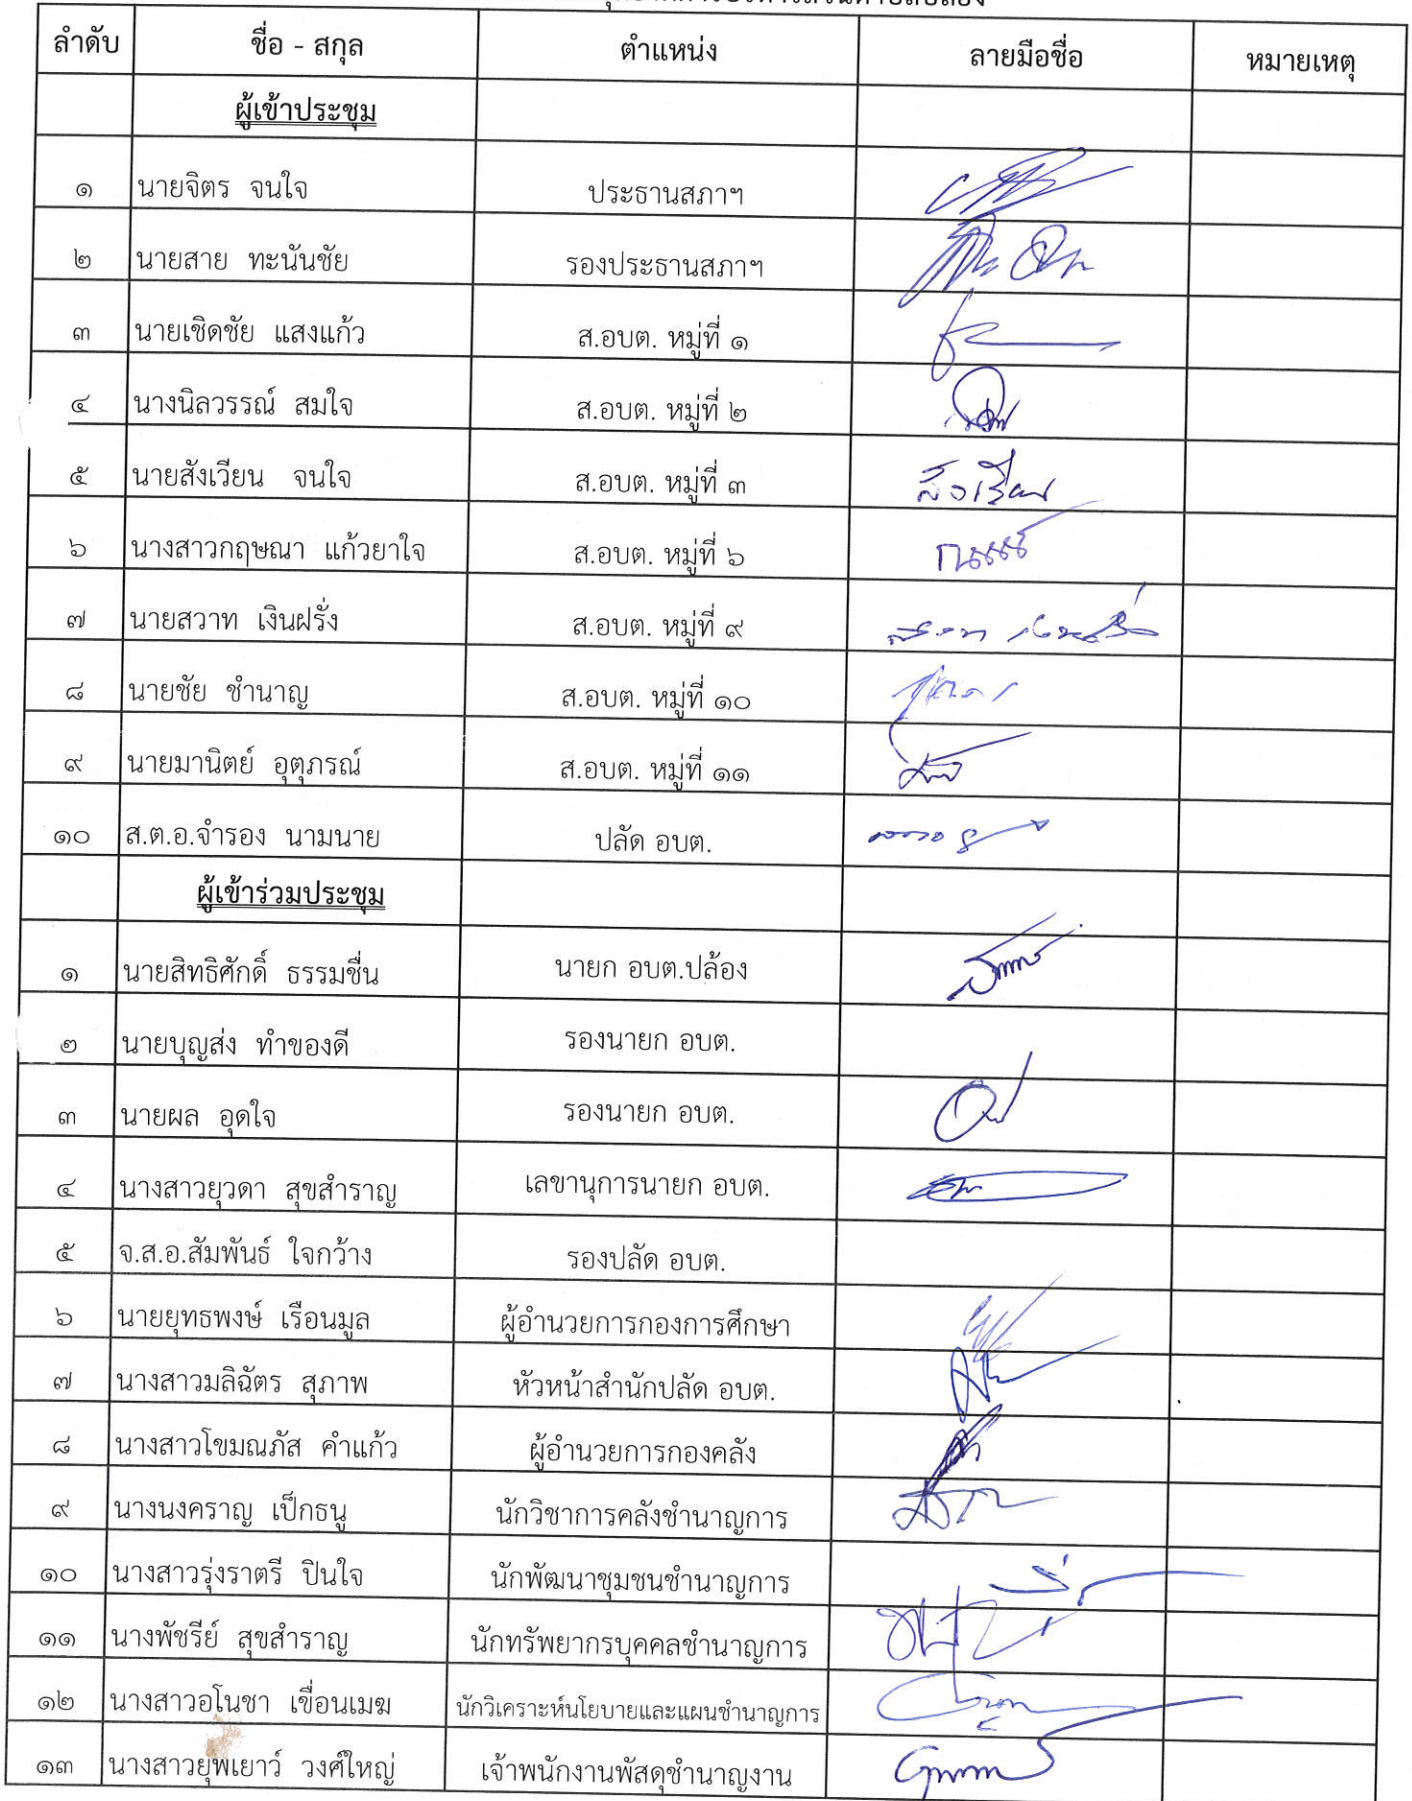 ลำดับ ชื่อ - สกุล ตำแหน่ง ลายมือชื่อ หมายเหตุ
ผู้เข้าประชุม
๑ นายจิตร จนใจ ประธานสภาฯ
๒ นายสาย ทะนันชัย รองประธานสภาฯ
๓ นายเชิดชัย แสงแก้ว ส.อบต. หมู่ที่ ๑
๔ นางนิลวรรณ์ สมใจ ส.อบต. หมู่ที่ ๒
๕ นายสังเวียน จนใจ ส.อบต. หมู่ที่ ๓ สังเวียน
๖ นางสาวกฤษณา แก้วยาใจ ส.อบต. หมู่ที่ ๖
๗ นายสวาท เงินฝรั่ง ส.อบต. หมู่ที่ ๙
๘ นายชัย ชำนาญ ส.อบต. หมู่ที่ ๑๐
๙ นายมานิตย์ อุตุภรณ์ ส.อบต. หมู่ที่ ๑๑
๑๐ ส.ต.อ.จำรอง นามนาย ปลัด อบต.
ผู้เข้าร่วมประชุม
๑ นายสิทธิศักดิ์ ธรรมชื่น นายก อบต.ปล้อง
๒ นายบุญส่ง ทำของดี รองนายก อบต.
๓ นายผล อุดใจ รองนายก อบต.
๔ นางสาวยุวดา สุขสำราญ เลขานุการนายก อบต.
๕ จ.ส.อ.สัมพันธ์ ใจกว้าง รองปลัด อบต.
๖ นายยุทธพงษ์ เรือนมูล ผู้อำนวยการกองการศึกษา
๗ นางสาวมลิฉัตร สุภาพ หัวหน้าสำนักปลัด อบต.
๘ นางสาวโขมณภัส คำแก้ว ผู้อำนวยการกองคลัง
๙ นางนงคราญ เป็กธนู นักวิชาการคลังชำนาญการ
๑๐ นางสาวรุ่งราตรี ปินใจ นักพัฒนาชุมชนชำนาญการ
๑๑ นางพัชรีย์ สุขสำราญ นักทรัพยากรบุคคลชำนาญการ
๑๒ นางสาวอโนชา เขื่อนเมฆ นักวิเคราะห์นโยบายและแผนชำนาญการ
๑๓ นางสาวยุพเยาว์ วงศ์ใหญ่ เจ้าพนักงานพัสดุชำนาญงาน